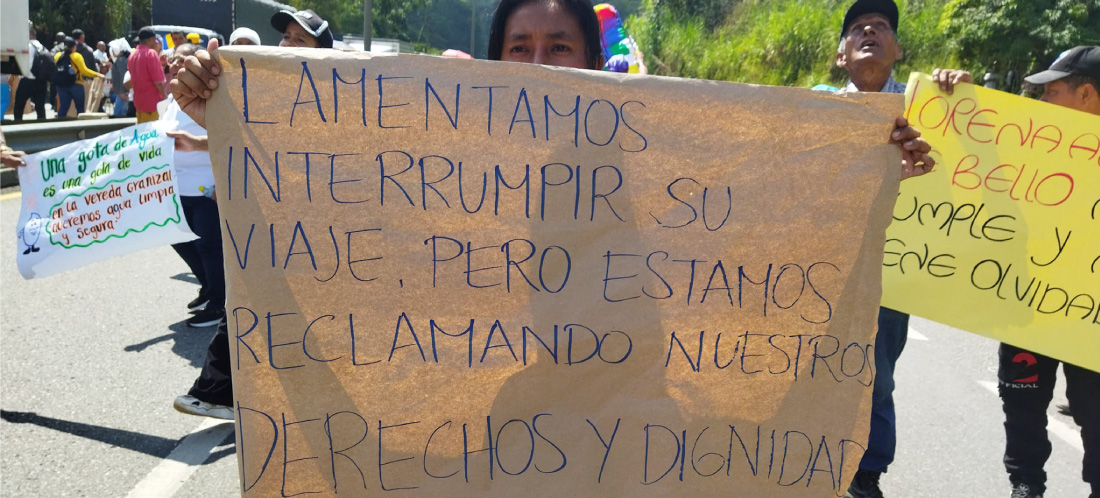 Una gota de Agua
es una gota de vida
en la vereda Granizal
Queremos agua limpia
y segura.
LAMENTAMOS
INTERRUMPIR SU
VIAJE. PERO ESTAMOS
RECLAMANDO NUESTROS
DERECHOS Y DIGNIDAD
LORENA
BELLO
Y
OLVIDAD
2
OFFICIAL